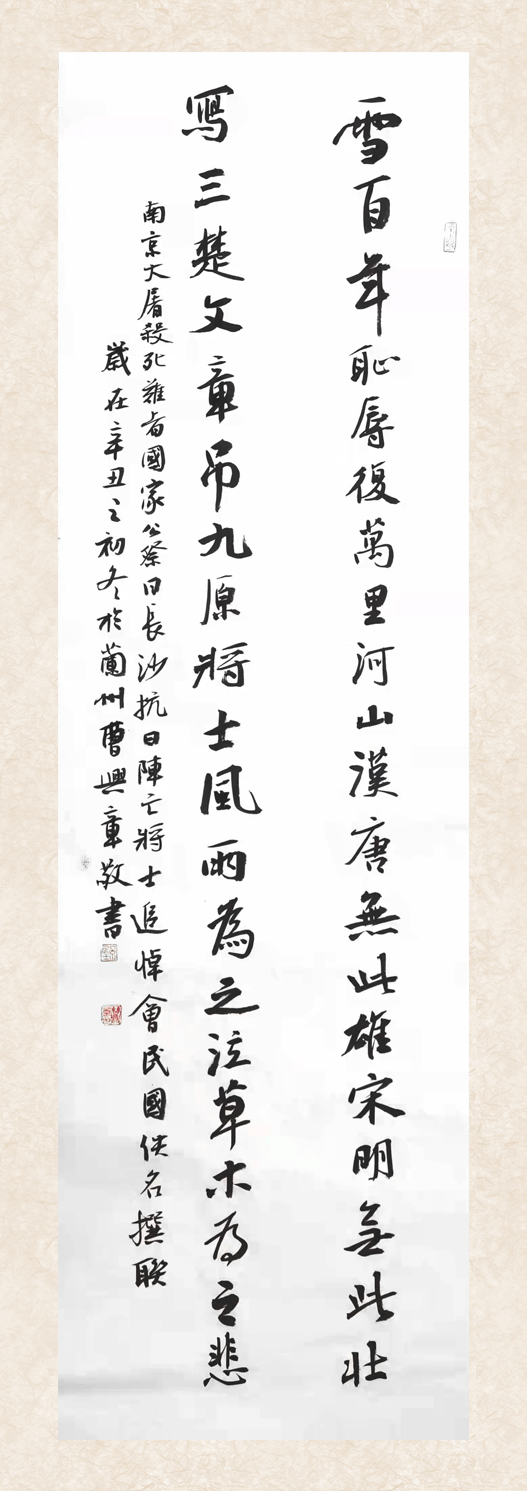 雪百年恥辱復萬里河山漢唐無此雄宋明無此壯
寫三楚文章吊九原將士風雨為之泣草木為之悲
南京大屠殺死難者國家公祭日長沙抗日陣亡將士追悼會民國佚名撰聯
歲在辛丑之初冬於蘭州曹興章敬書